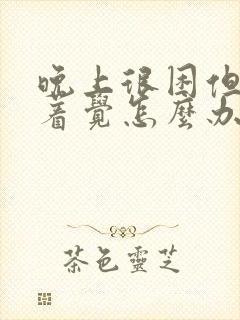 晚上很困但
着覺怎麼办
茶色靈芝